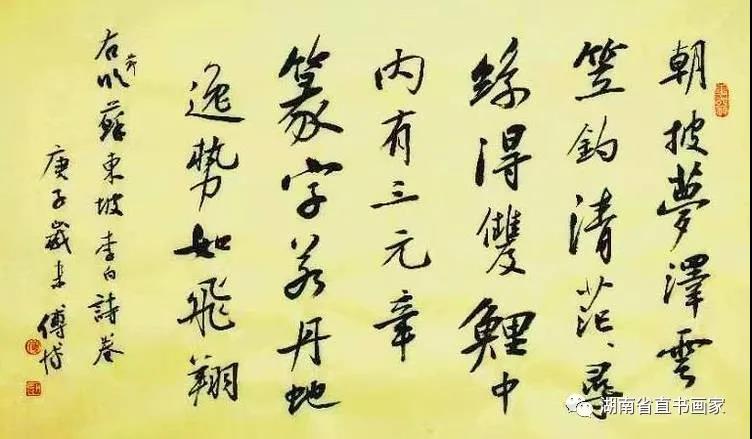 朝披夢澤雲
笠釣清茫茫尋
絲得雙鯉中
內有三元章
篆字若丹蛇
逸勢如飛翔
右節臨蘇東坡李白詩卷
庚子歲末傅
湖南省直书画家